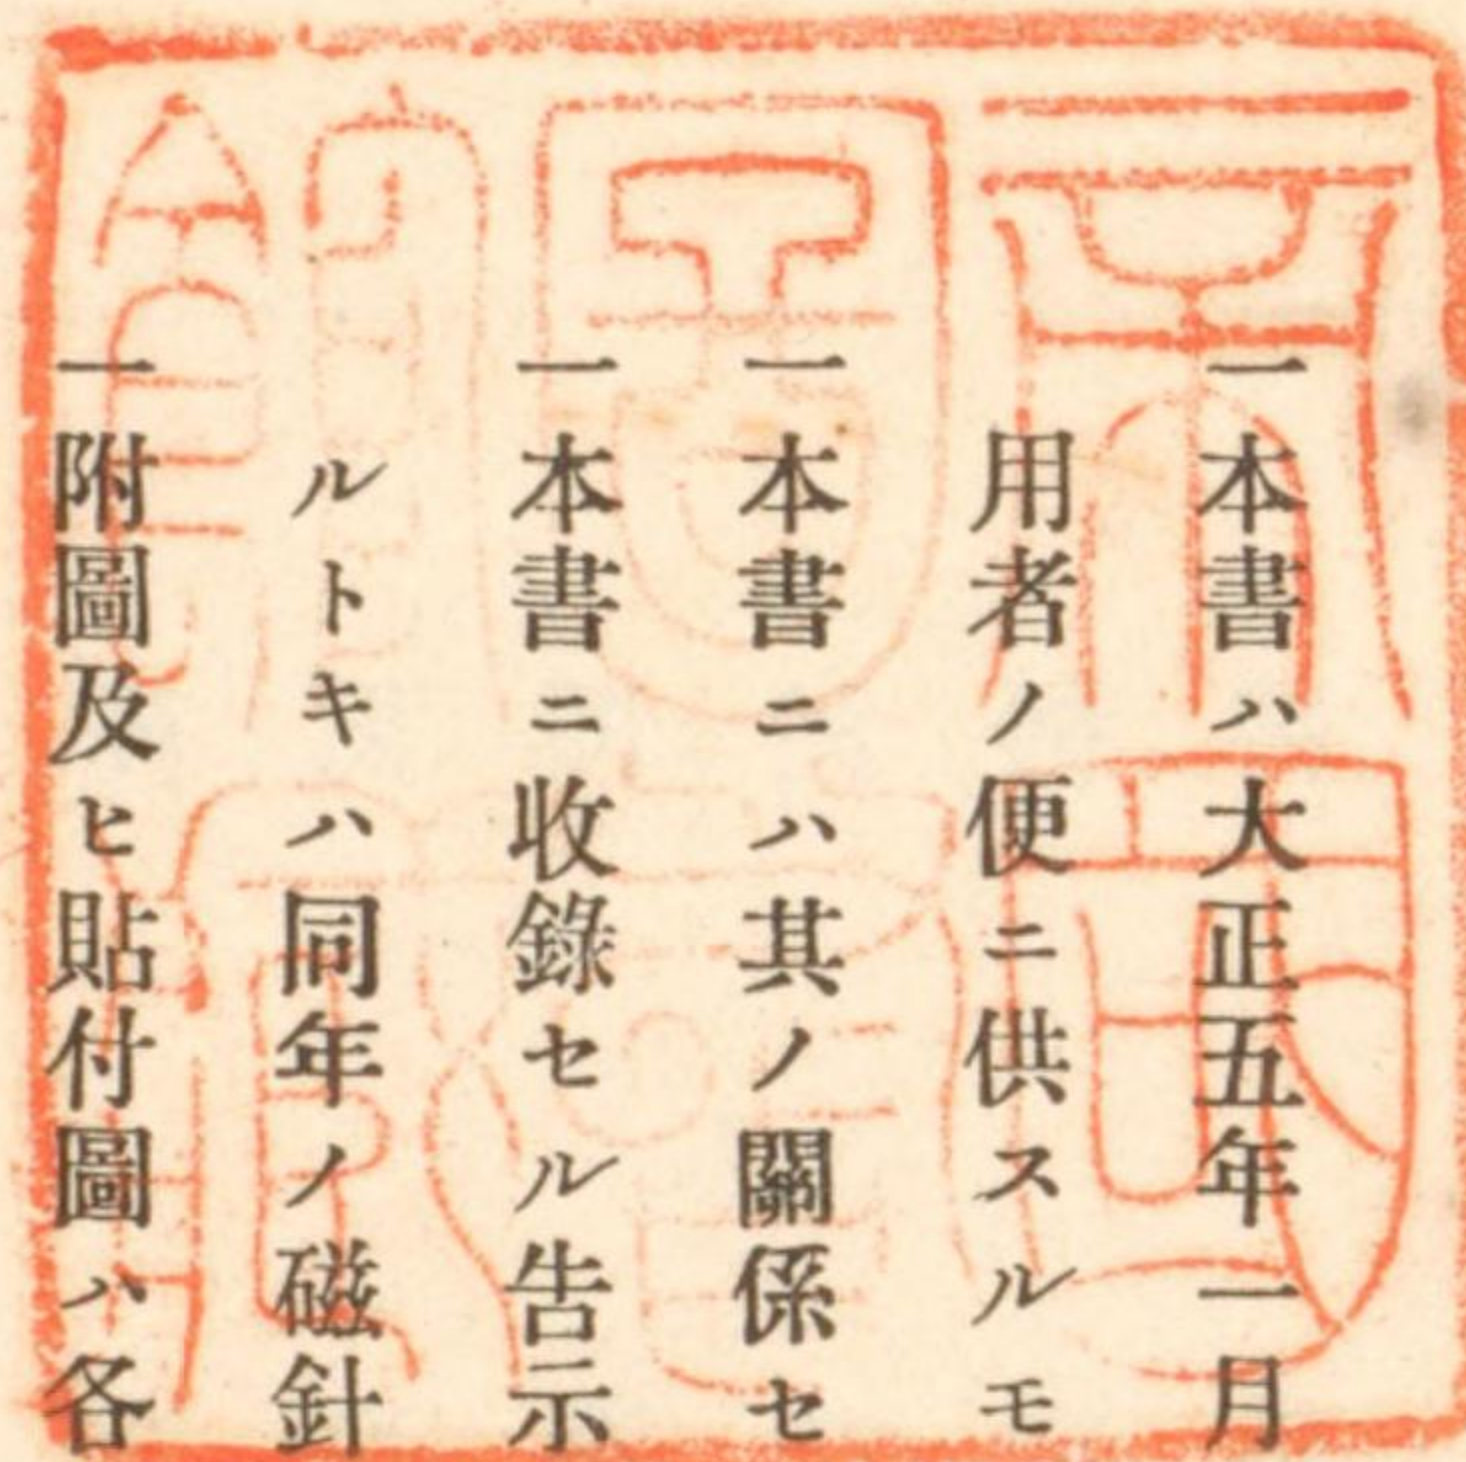 一本書ハ大正五年一月
用者ノ便ニ供スルモ
一本書ニハ其ノ關係セ
一本書ニ收錄セル告示
ルトキハ同年ノ磁針
一附圖及ヒ貼付圖ハ各